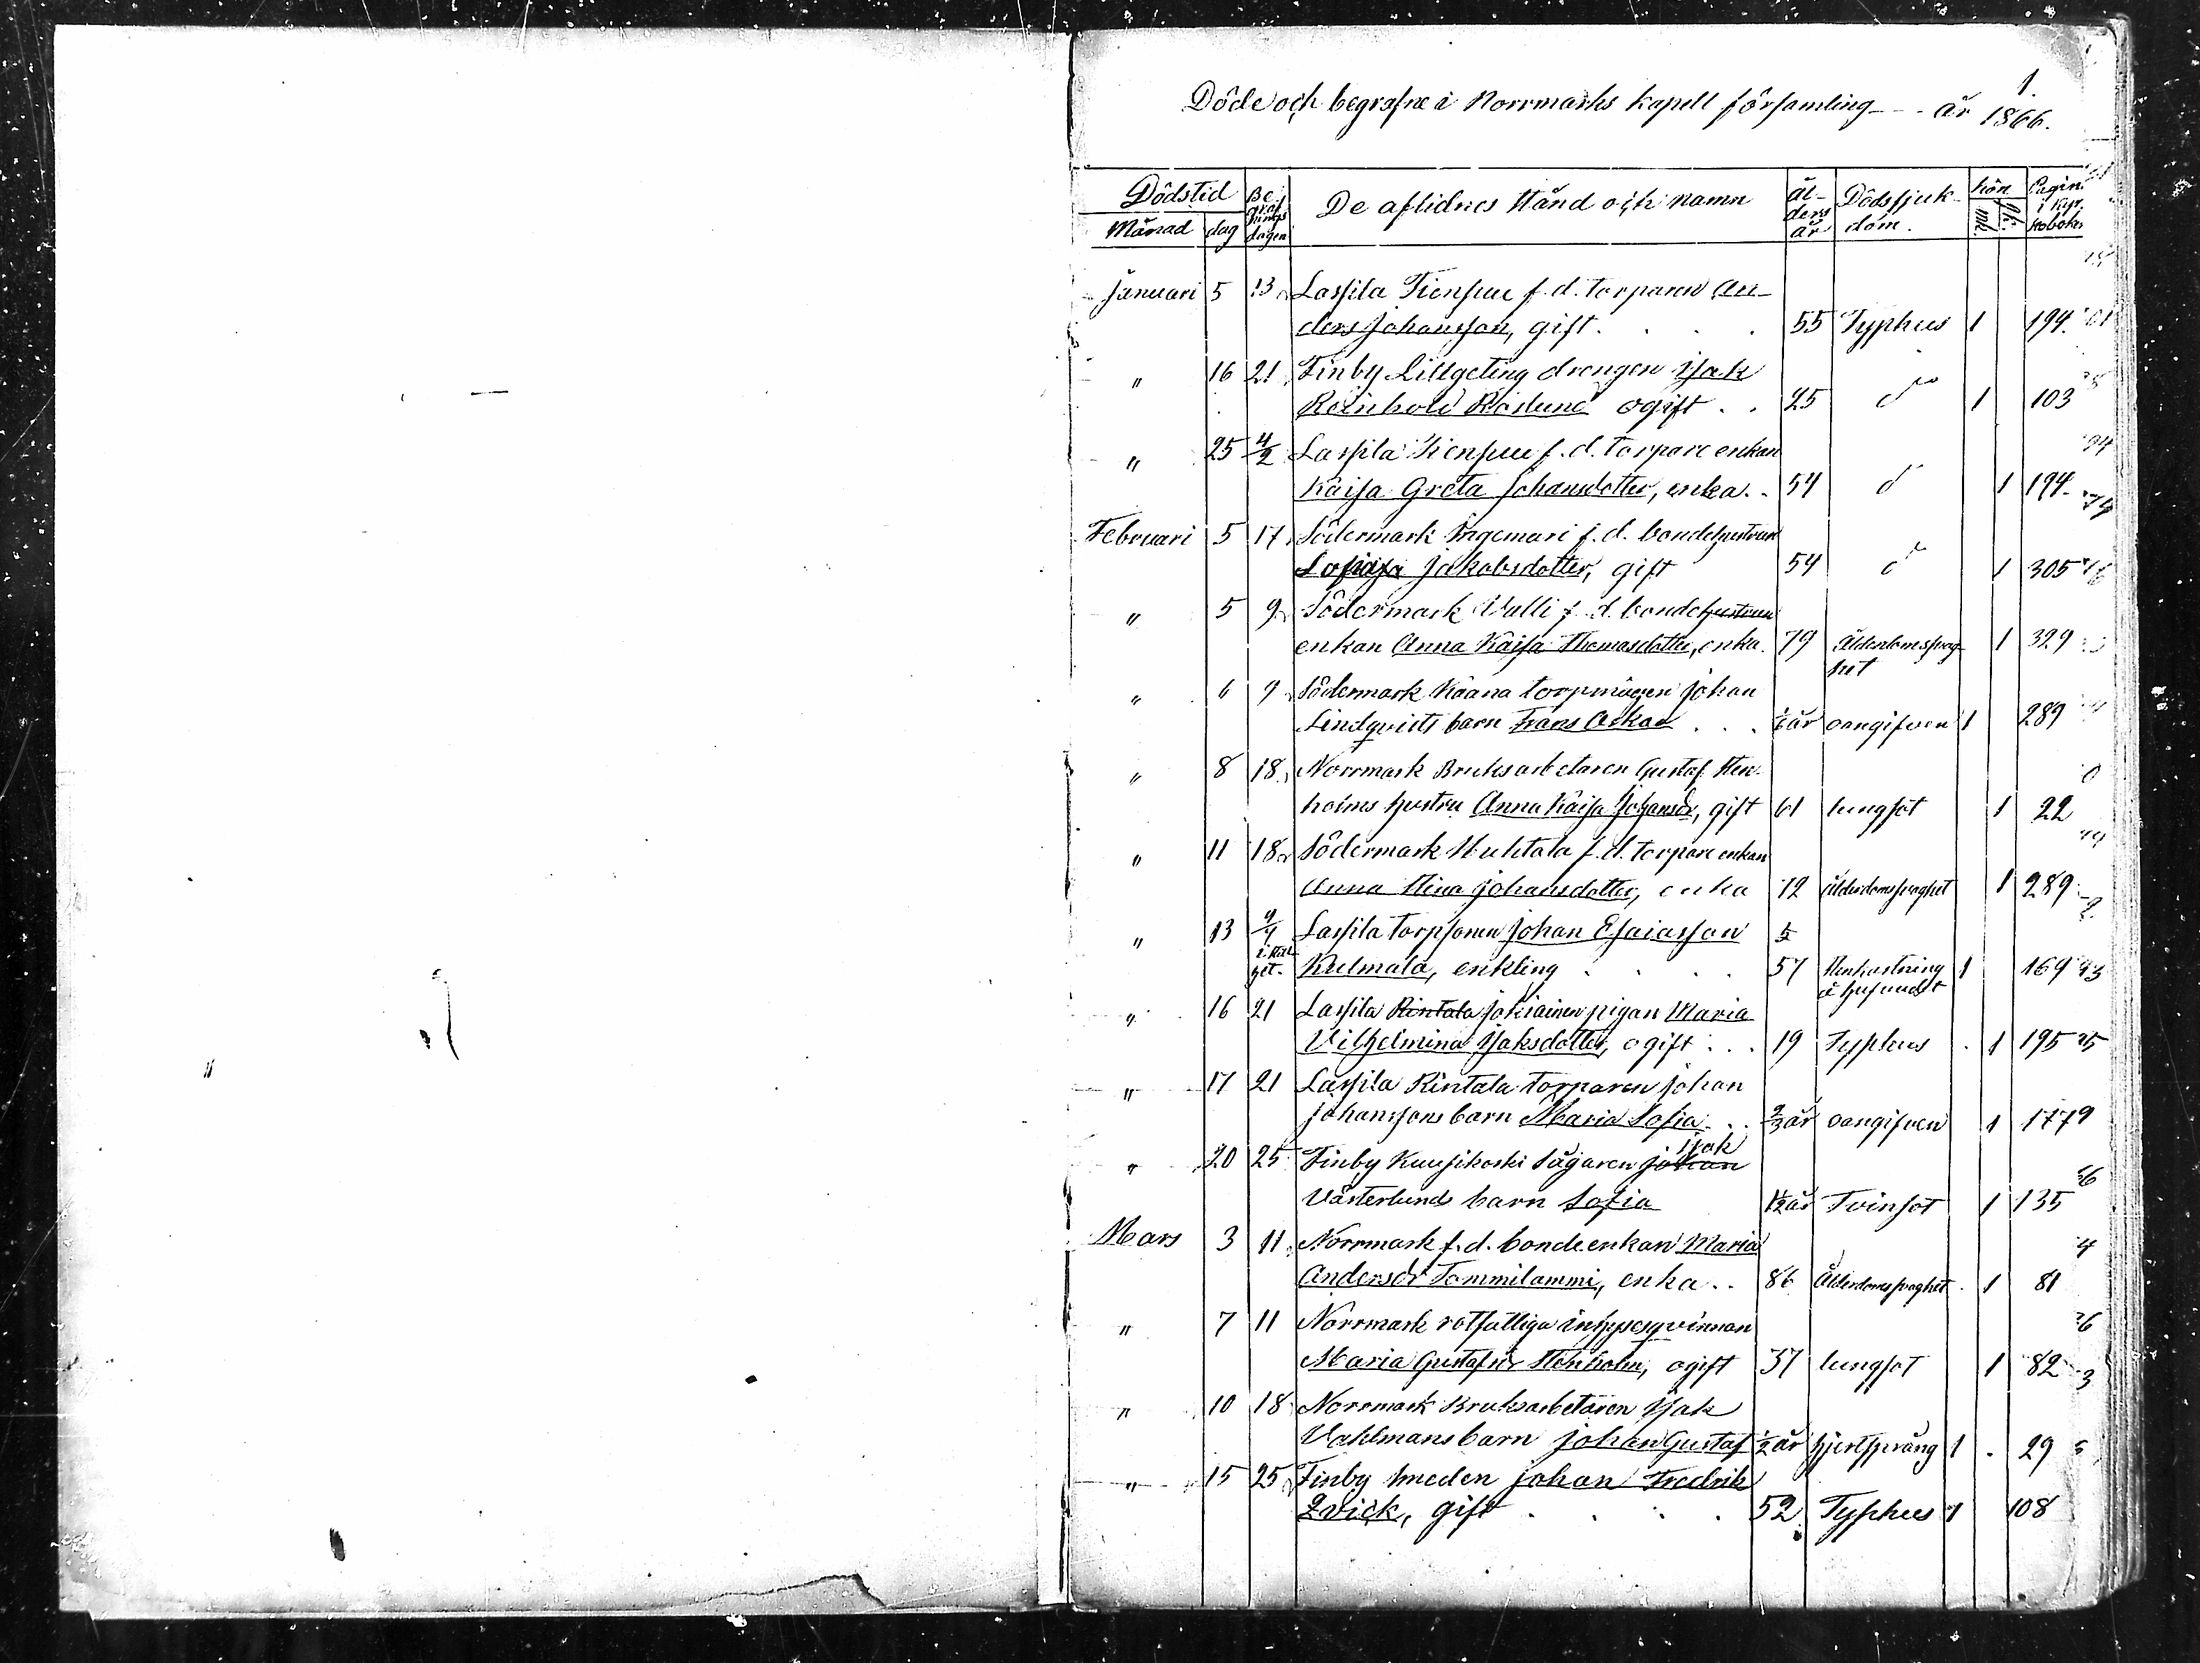 1.
Döde och begrafne i Norrmarks kapell församling - - - år 1866.
Dödstid Begrafnings dagen De aflidnes stånd och namn Ålders år Dödssjukdom. kön Pagin. i Kyrkoboken
Månad dag m.
Januari 5 13 Lassila Tiensuu f.d. torparen An-
ders Johansson, gift. 55 Typhus 1 194.
" 16 21 Finby Lillgeting drengen Isak
Reinhold Roslund ogift . . 25 do 1 103
" 25 4/2 Lassila Tiensuu f.d. torpare enkan
Kaisa Greta Johansdotter, enka. . 54 do 1 194
Februari 5 17 Södermark Ingemari f.d. bondehustrun
Jakobsdotter, gift 54 do 1 305
" 5 9 Södermark Valli f.d. bondehustrun
enkan Anna Kaisa Thomasdotter, enka. 79 Ålderdomssvag- 1 329
het
" 6 9 Södermark Kaana torpmågen Johan
Lindqvists barn Frans Oskar . . . år oangifven 1 289
" 8 18 Norrmark Bruksarbetaren Gustaf Sten-
holms hustru Anna Kaisa Johansdr, gift 61 lungsot 1 22
" 11 18 Södermark Huhtala f.d. torpare enkan
Anna Stina Johansdotter, enka 72 ålderdomssvaghet 1 289
" 13 Lassila torpsonen Johan Esaiasson 5
Kulmala, enkling . . . . 57 Stenkastning 1 169
å hufvudet
" 16 21 Lassila Rintala Jokiainen pigan Maria
Vilhelmina Isaksdotter, ogift . . . 19 Typhus 1 195
" 17 21 Lassila Rintala torparen Johan
Johanssons barn Maria Sofia . . 2/3 år oangifven 1 177
Isak
" 20 25 Finby Kuusikoski Sågaren Johan
Västerlunds barn Sofia 1½ år Tvinsot 1 135
Mars 3 11 Norrmark f.d. bonde enkan Maria
Andersdr Tommilammi, enka . . 86 Ålderdomssvaghet 1 81
" 7 11 Norrmark rotfattiga inhyseqvinnan
Maria Gustafsdr Stenholm, ogift 37 lungsot 1 82
" 10 18 Norrmark Bruksarbetaren Isak
Vahlmans barn Johan Gustaf ½ år hjertsprång 1 . 29
" 15 25 Finby smeden Johan Fredrik
Qvick, gift . . . . 52 Typhus 1 108